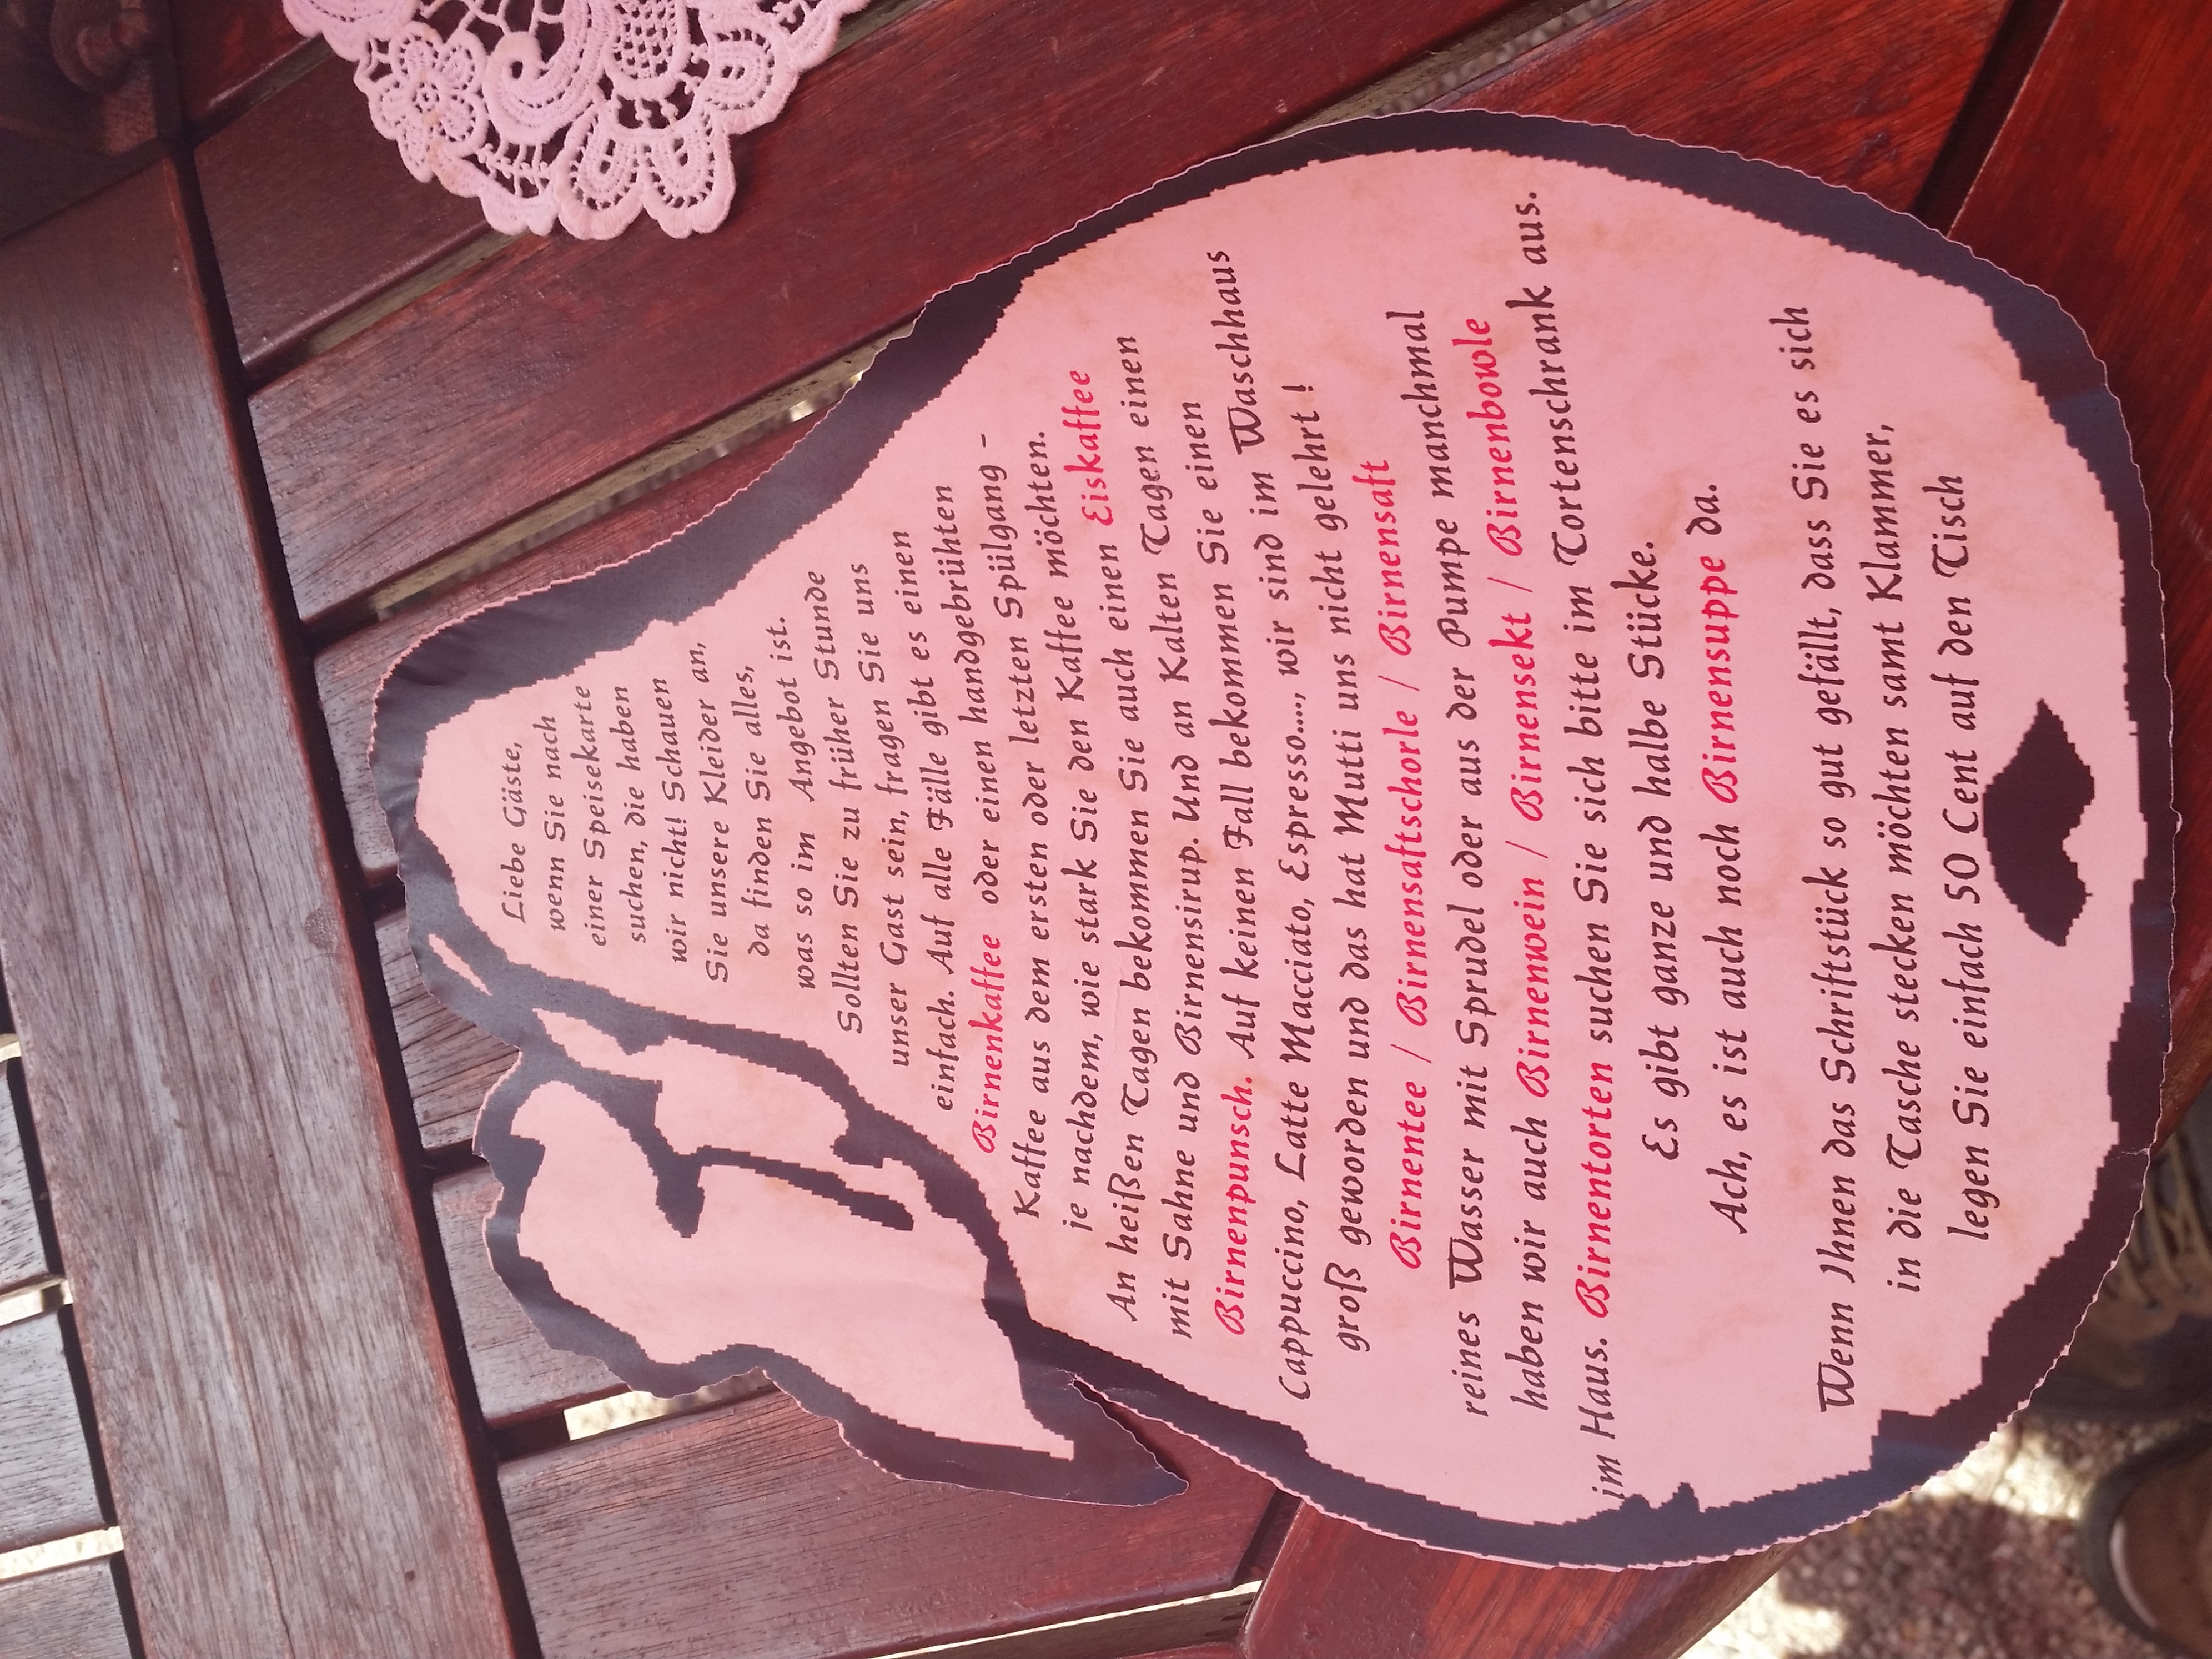 Liebe Gäste,
wenn Sie nach
einer Speisekarte
suchen, die haben
wir nicht! Schauen
Sie unsere Kleider an,
da finden Sie alles,
was so im Angebot ist.
Sollten Sie zu früher Stunde
unser Gast sein, fragen Sie uns
einfach. Auf alle Fälle gibt es einen
Birnenkaffee oder einen handgebrühten
Kaffee aus dem ersten oder letzten Spülgang -
je nachdem, wie stark Sie den Kaffee möchten.
An heißen Tagen bekommen Sie auch einen Eiskaffee
mit Sahne und Birnensirup. Und an Kalten Tagen einen
Birnenpunsch. Auf keinen Fall bekommen Sie einen
Cappuccino, Latte Macciato, Espresso...., wir sind im Waschhaus
groß geworden und das hat Mutti uns nicht gelehrt !
Birnentee / Birnensaftschorle / Birnensaft
reines Wasser mit Sprudel oder aus der Pumpe manchmal
haben wir auch Birnenwein / Birnensekt / Birnenbowle
im Haus. Birnentorten suchen Sie sich bitte im Tortenschrank aus.
Es gibt ganze und halbe Stücke.
Ach, es ist auch noch Birnensuppe da.
Wenn Ihnen das Schriftstück so gut gefällt, dass Sie es sich
in die Tasche stecken möchten samt Klammer,
legen Sie einfach 50 Cent auf den Tisch